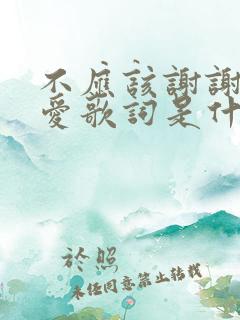 不應該謝謝
愛歌詞是什
於照
未經同意禁止轉載